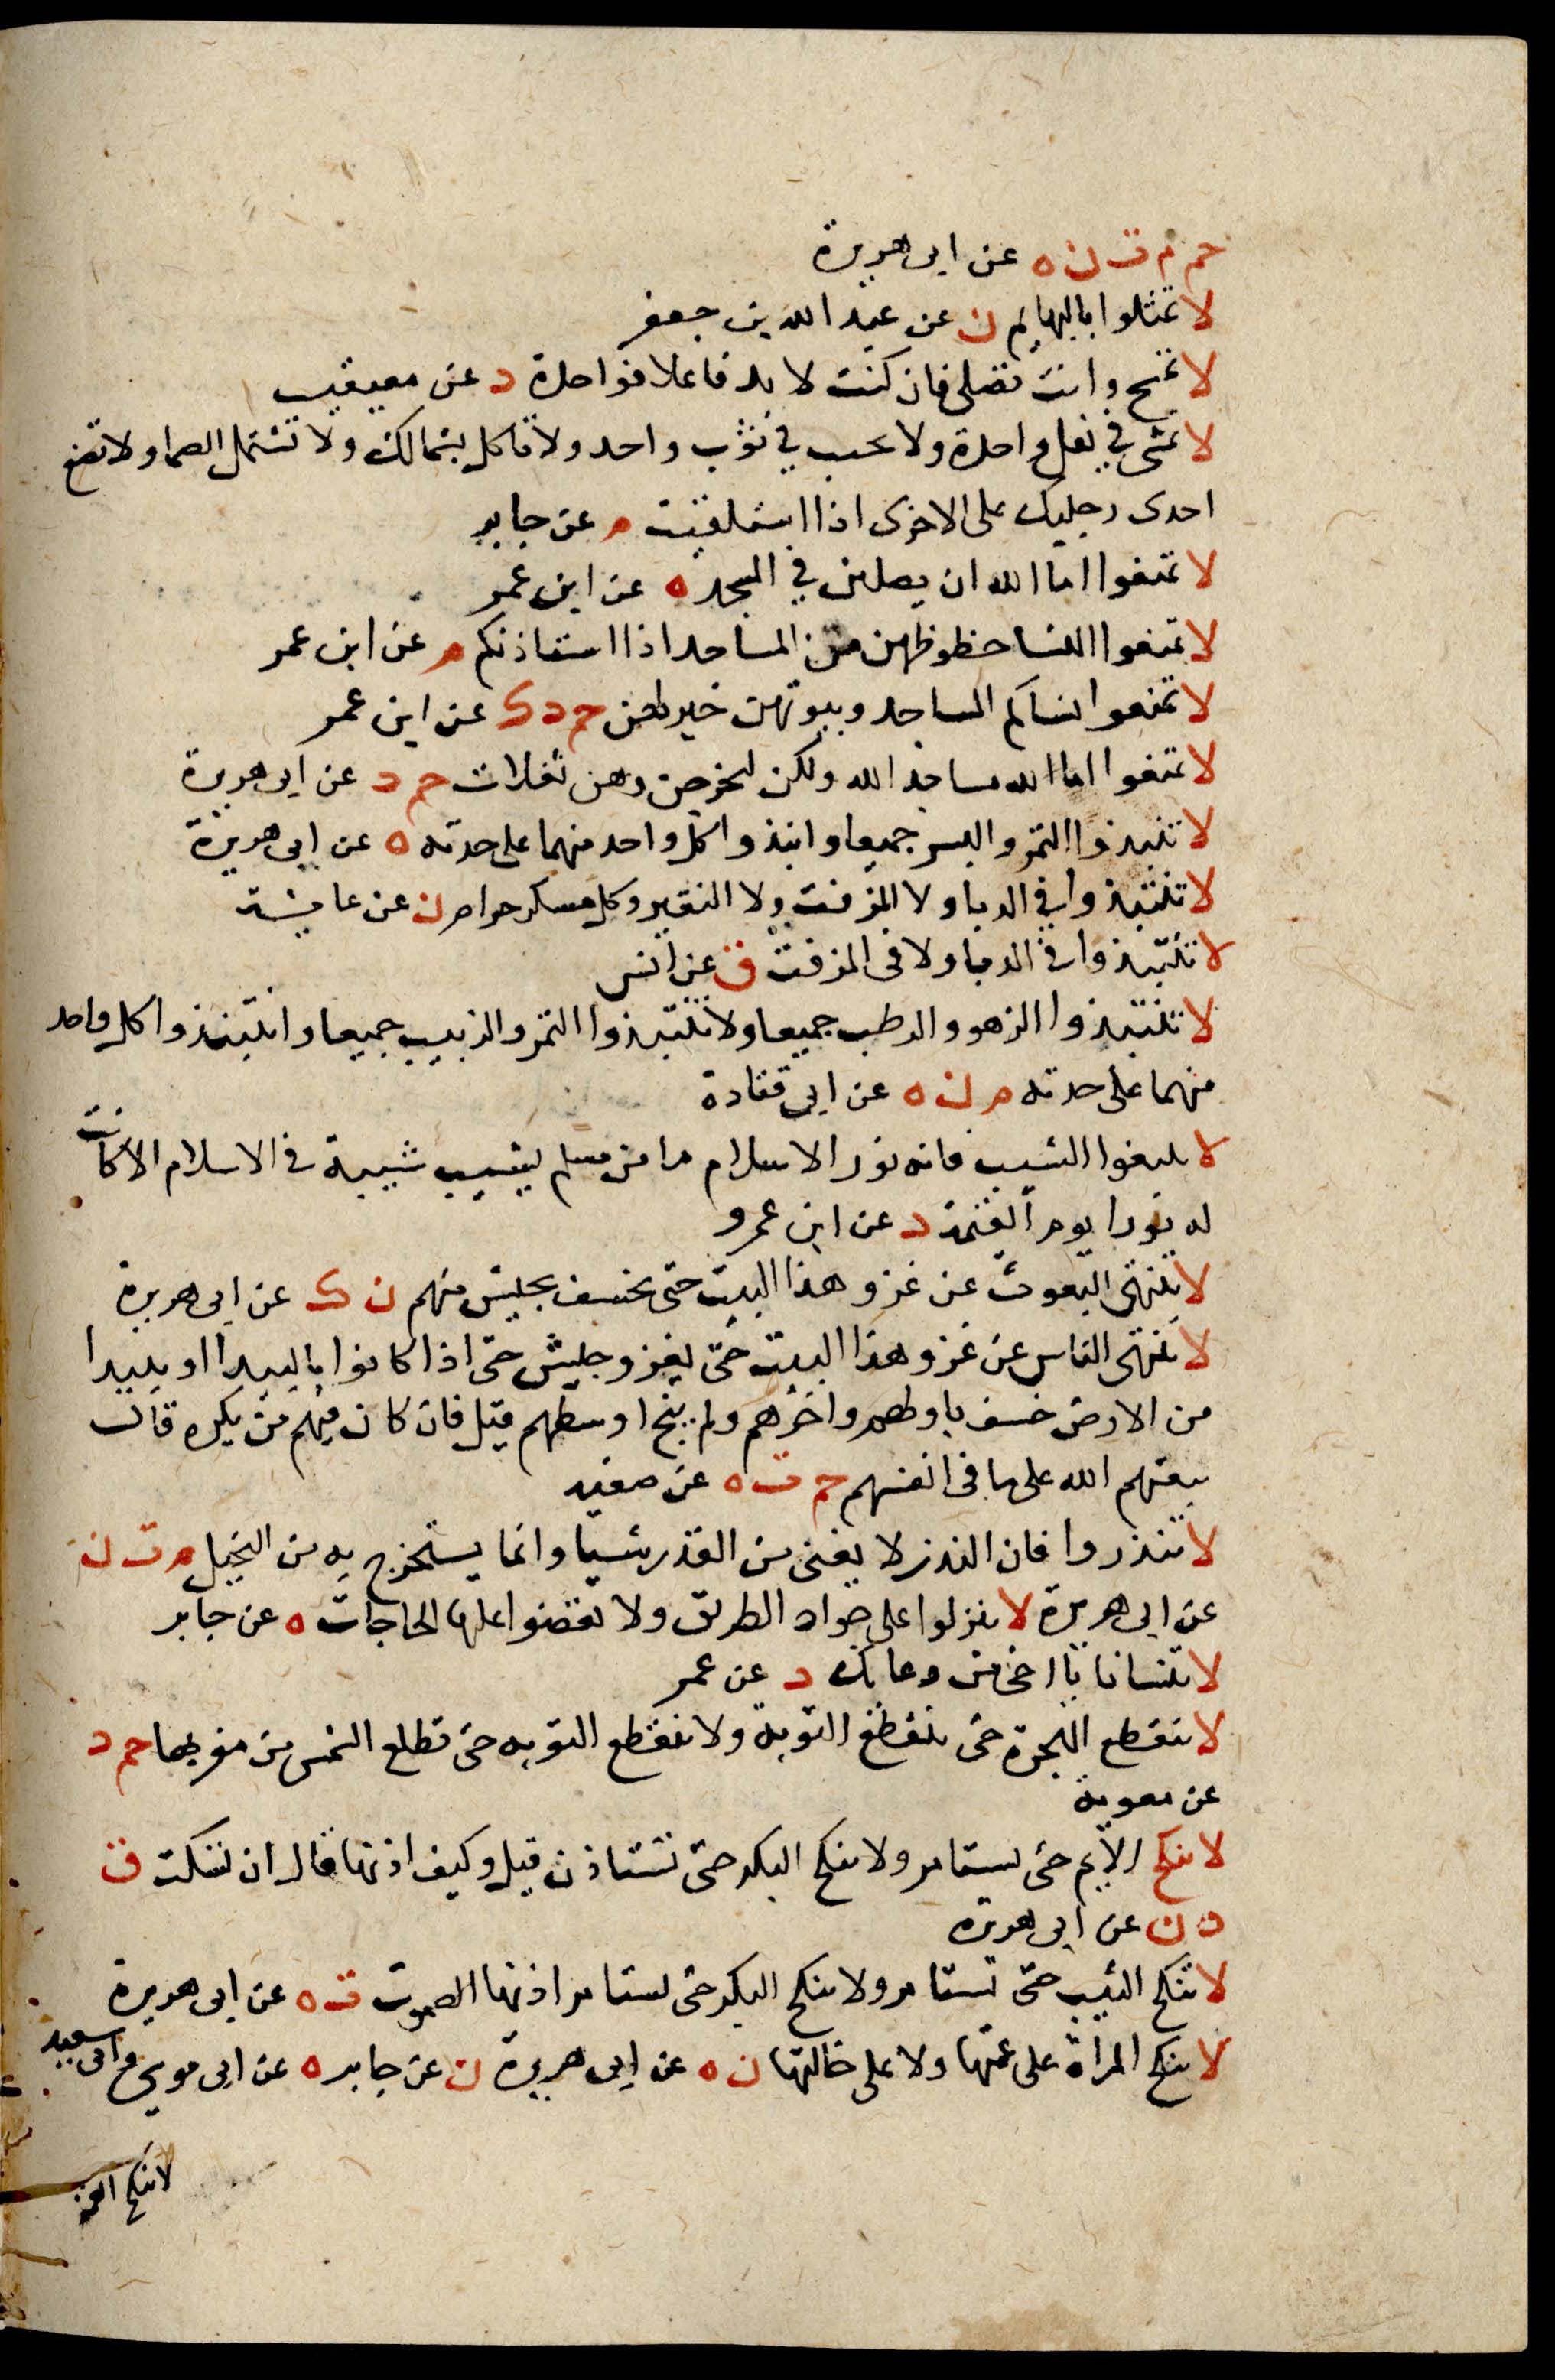 حم م ت ن ه عن ابى هريرة
لا تمثلوا بالبهايم ن عن عبد الله بن جعفر
لا تمسح وانت تصلى فان كنت لا بد فاعلا فواحدة د عن معيقيب
لا تمش في نعل واحدة ولا تحتب في ثوب واحد ولا تاكل بشمالك ولا تشتمل الصما ولا تضع
احدى رجليك على الاخرى اذا استلقيت م عن جابر
لا تمنعوا اما الله ان يصلين في المسجد ه عن ابن عمر
لا تمنعوا النسا حظوظهن من المساجد اذا استاذنكم م عن ابن عمر
لا تمنعوا نساكم المساجد وبيوتهن خير لهن حم د ك عن ابن عمر
لا تمنعوا اما الله مساجد الله ولكن ليخرجن وهن تفلات حم د عن ابى هريرة
لا تنبذوا التمر والبسر جميعا وانبذوا كل واحد منهما على حدته ه عن ابى هريرة
لا تنتبذوا في الدبا ولا المزفت ولا النقير وكل مسكر حرام ن عن عايشة
لا تنتبذوا في الدبا ولا فى المزفت ق عن انس
لا تنتبذوا الزهو والرطب جميعا ولا تنتبذوا التمر والزبيب جميعا وانتبذوا كل واحد
منهما على حدته م ن ه عن ابى قتادة
لا تنتفوا الشيب فانه نور الاسلام ما من مسلم يشيب شيبة في الاسلام الا كانت
له نورا يوم القيمة د عن ابن عمرو
لا تنتهى البعوث عن غزو هذا البيت حتى يخسف بجيش منهم ن ك عن ابى هريرة
لا ينتهى الناس عن غزو هذا البيت حتى يغزو جيش حتى اذا كانوا بالبيدا او ببيدا
من الارض خسف باولهم واخرهم ولم ينج اوسطهم قيل فان كان فيهم من يكره قال
يبعثهم الله على ما فى انفسهم حم ت ه عن صفيه
لا تنذروا فان النذر لا يغنى من القدر شيا وانما يستخرج به من البخيل م ت ن
عن ابى هريرة لا تنزلوا على جواد الطريق ولا تقضوا عليها الحاجات ه عن جابر
لا تنسانا يا اخى من دعائك د عن عمر
لا تنقطع الهجرة حتى تنقطع التوبة ولا تنقطع التوبه حتى تطلع الشمس من مغربها حم د
عن معوية
لا تنكح الايم حتى تستامر ولا تنكح البكر حتى تستاذن قيل وكيف اذنها قال ان تسكت ق
د ن عن ابى هريره
لا تنكح الثيب حتى تستامر ولا تنكح البكر حتى تستامر اذنها الصموت ت ه عن ابى هريرة
لا تنكح المراة على عمتها ولا على خالتها ن ه عن ابى هريرة ن عن جابر ه عن ابى موسى وابى سعيد
لا تنكح